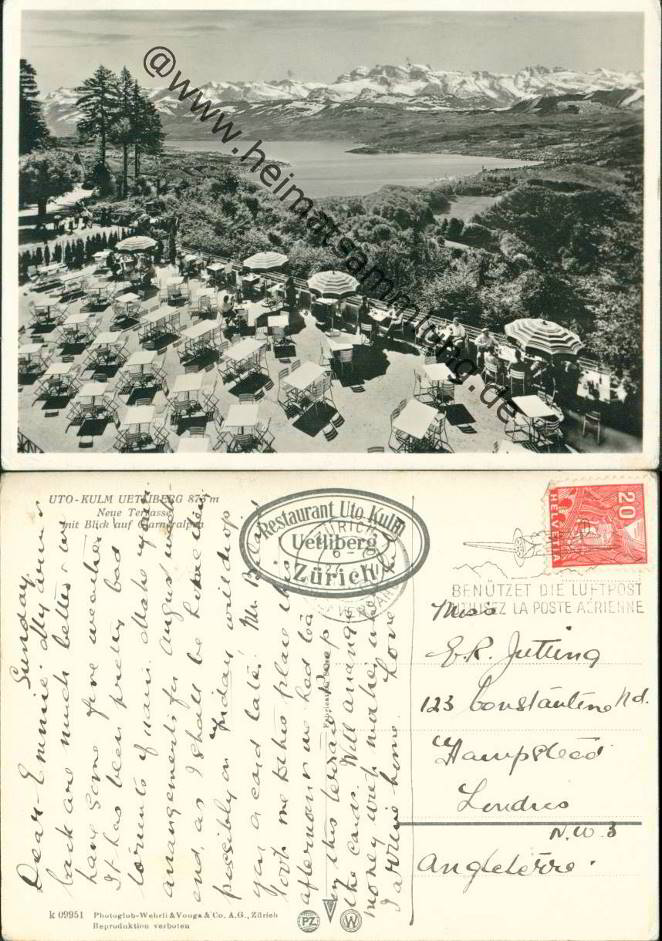 @www.heimatsammlung.de
UTO-KULM UETLIBERG 873 m
Neue Terrasse
mit Blick auf Glarneralpen
Restaurant Uto Kulm
Uetliberg
Zürich
HELVETIA
20
BENÜTZET DIE LUFTPOST
UTILISEZ LA POSTE AÉRIENNE
Sunday.
Dear Emmie. My arm &
back are much better & we
have some fine weather.
It has been pretty bad
torrents of rain. Make your
arrangements for August week-
end, as I shall be home
possibly on Friday will drop
you a card later. Mr.
took me to this place this
afternoon & we had tea
on this terrace
the cards. Will arrange
money with mother when
I arrive home. Love
Miss
E.R. Jutting
123 Constantine Rd.
Hampstead
Londres
N.W.3
Angleterre.
k 09951 Photoglob-Wehrli & Vouga & Co. A.G., Zürich
Reproduktion verboten
PZ
W